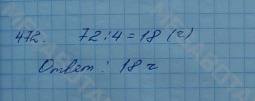 472. 72:4=18 (г)
Ответ: 18 г